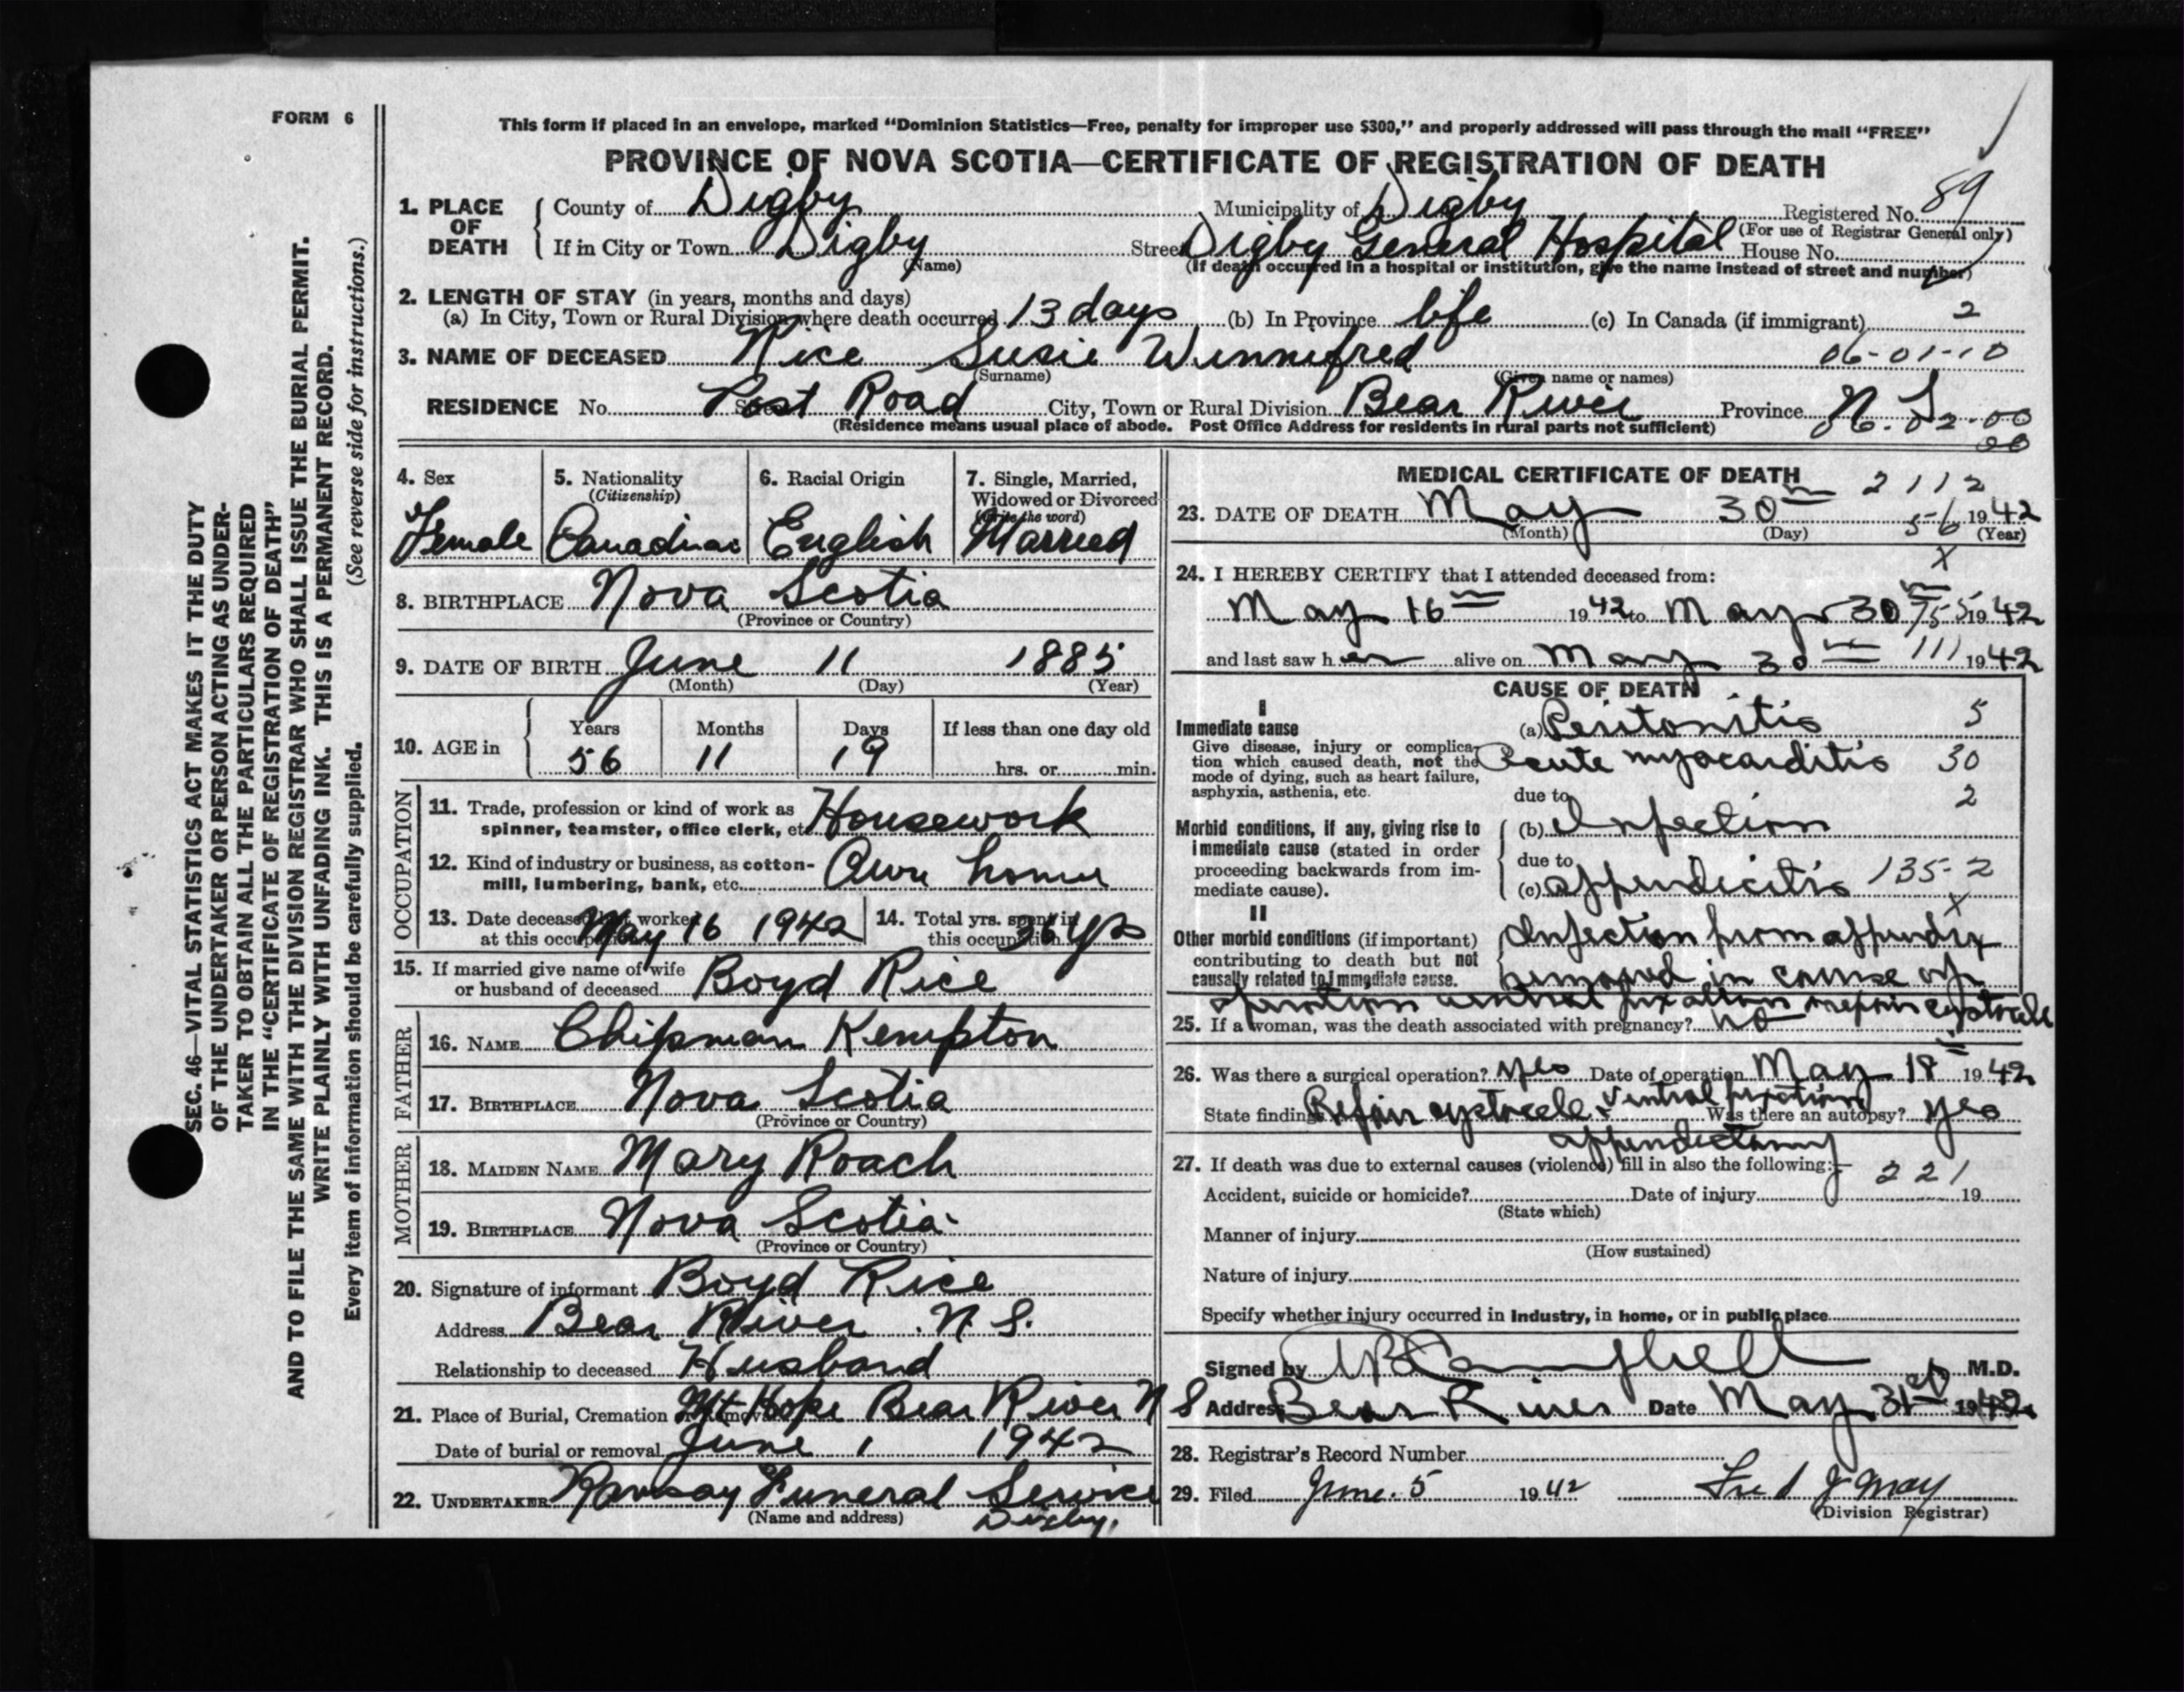 FORM 6
This form if placed in an envelope, marked “Dominion Statistics—Free, penalty for improper use $300,” and properly addressed will pass through the mail “FREE”
PROVINCE OF NOVA SCOTIA—CERTIFICATE OF REGISTRATION OF DEATH
1. PLACE OF DEATH
County of Digby Municipality of Digby Registered No. 89
(For use of Registrar General only)
If in City or Town Digby Street Digby General Hospital House No.
(Name) (If death occurred in a hospital or institution, give the name instead of street and number)
2. LENGTH OF STAY (in years, months and days)
(a) In City, Town or Rural Division where death occurred 13 days (b) In Province life (c) In Canada (if immigrant) 2
3. NAME OF DECEASED Rice Susie Winnifred 06-01-10
(Surname) (Given name or names)
RESIDENCE No. Street Post Road City, Town or Rural Division Bear River Province N.S.
06-02-00
00
(Residence means usual place of abode. Post Office Address for residents in rural parts not sufficient)
4. Sex
Female
5. Nationality
(Citizenship)
Canadian
6. Racial Origin
English
7. Single, Married,
Widowed or Divorced
(Write the word)
Married
8. BIRTHPLACE Nova Scotia
(Province or Country)
9. DATE OF BIRTH June 11 1885
(Month) (Day) (Year)
10. AGE in
Years Months Days If less than one day old
56 11 19 hrs. or min.
OCCUPATION
11. Trade, profession or kind of work as
spinner, teamster, office clerk, etc. Housework
12. Kind of industry or business, as cotton-
mill, lumbering, bank, etc. Own home
13. Date deceased last worked
at this occupation May 16 1942
14. Total yrs. spent in
this occupation 36 yrs
15. If married give name of wife
or husband of deceased Boyd Rice
FATHER
16. NAME Chipman Kempton
17. BIRTHPLACE Nova Scotia
(Province or Country)
MOTHER
18. MAIDEN NAME Mary Roach
19. BIRTHPLACE Nova Scotia
(Province or Country)
20. Signature of informant Boyd Rice
Address Bear River N.S.
Relationship to deceased Husband
21. Place of Burial, Cremation or Removal Mt Hope Bear River N S
Date of burial or removal June 1 1942
22. UNDERTAKER Ramsay Funeral Service
(Name and address) Digby.
MEDICAL CERTIFICATE OF DEATH
2112
23. DATE OF DEATH May 30th 56 1942
(Month) (Day) (Year)
X
24. I HEREBY CERTIFY that I attended deceased from:
May 16th 1942 to May 30th 755 1942
and last saw her alive on May 30th 111 1942
CAUSE OF DEATH
I
Immediate cause
Give disease, injury or complica-
tion which caused death, not the
mode of dying, such as heart failure,
asphyxia, asthenia, etc.
(a) Peritonitis 5
Acute myocarditis 30
due to 2
Morbid conditions, if any, giving rise to
immediate cause (stated in order
proceeding backwards from im-
mediate cause).
(b) Infection
due to
(c) appendicitis 135-2
X
II
Other morbid conditions (if important)
contributing to death but not
causally related to immediate cause.
Infection from appendix
removed in course of
operation ventral fixation repair cystocele
25. If a woman, was the death associated with pregnancy? no
26. Was there a surgical operation? yes Date of operation May 18th 1942
State findings Repair cystocele ventral fixation Was there an autopsy? yes
appendectomy
27. If death was due to external causes (violence) fill in also the following:— 221
Accident, suicide or homicide? Date of injury 19
(State which)
Manner of injury
(How sustained)
Nature of injury
Specify whether injury occurred in industry, in home, or in public place
Signed by Campbell M.D.
Address Bear River Date May 31st 1942
28. Registrar's Record Number
29. Filed June. 5 1942 Fred J May
(Division Registrar)
SEC. 46—VITAL STATISTICS ACT MAKES IT THE DUTY
OF THE UNDERTAKER OR PERSON ACTING AS UNDER-
TAKER TO OBTAIN ALL THE PARTICULARS REQUIRED
IN THE “CERTIFICATE OF REGISTRATION OF DEATH”
AND TO FILE THE SAME WITH THE DIVISION REGISTRAR WHO SHALL ISSUE THE BURIAL PERMIT.
WRITE PLAINLY WITH UNFADING INK. THIS IS A PERMANENT RECORD.
Every item of information should be carefully supplied. (See reverse side for instructions.)